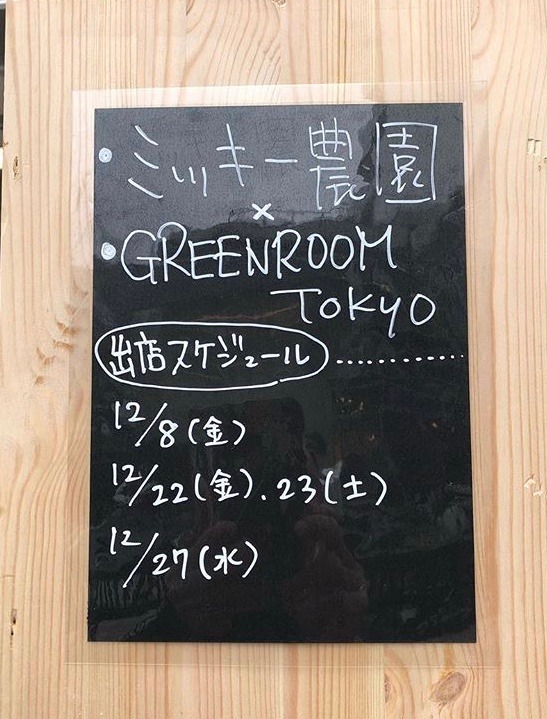 ミッキー農園
×
GREENROOM
TOKYO
出店スケジュール
12/8(金)
12/22(金).23(土)
12/27(水)